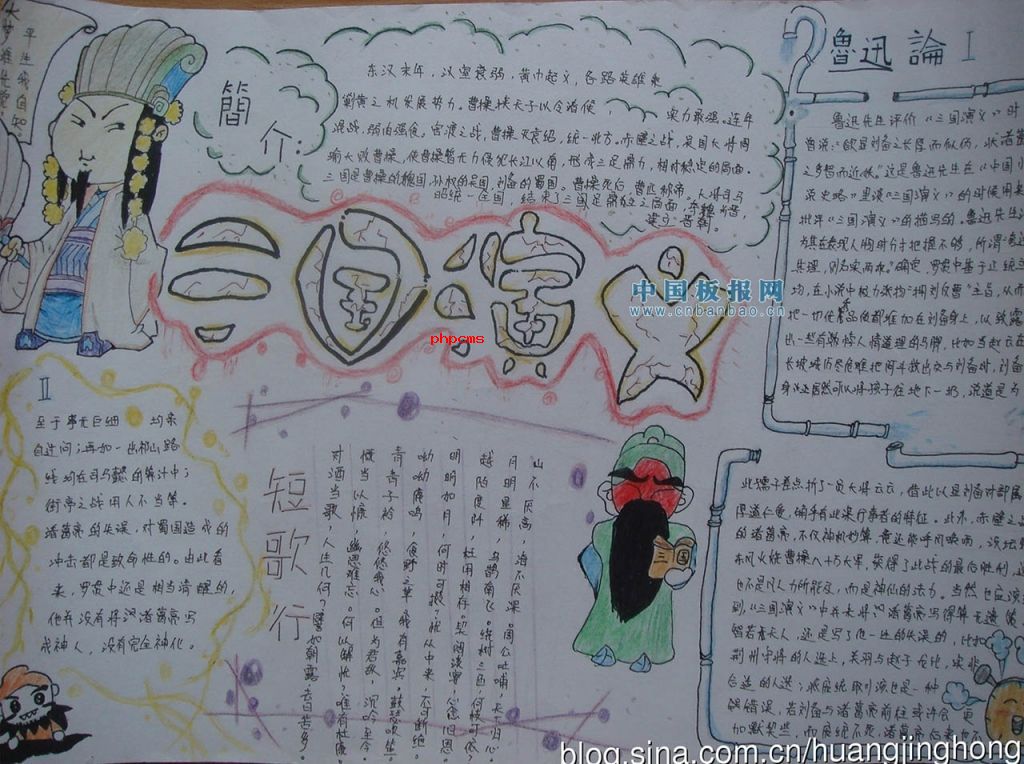 簡介:
东汉末年，汉室衰弱，黄巾起义，各路英雄乘
剿黄之机发展势力。曹操挟天子以令诸侯，实力最强。连年
混战，弱肉强食。官渡之战，曹操灭袁绍，统一北方。赤壁之战，吴国大将周
瑜大败曹操，使曹操暂无力侵犯长江以南，形成三足鼎力，相对稳定的局面。
三国是曹操的魏国，孙权的吴国，刘备的蜀国。曹操死后，曹丕称帝，大将司马
昭统一全国，结束了三国足鼎立之局面，
建立晋朝。
三国演义
魯迅論 I
鲁迅先生评价《三国演义》时
曾说："欲显刘备之长厚而似伪，状诸葛
之多智而近妖。"这是鲁迅先生在《中国小
说史略》里谈《三国演义》的时候用来
批评《三国演义》的描写的。鲁迅先生
为其在表现人物时分寸把握不够，所谓
确定，罗贯中基于正统
均，在小说中极力张扬"拥刘反曹"主旨，从而
把一切优秀品德都堆加在刘备身上，以致露
出一些有悖情人情道理的马脚，比如当赵云在
长坂坡历尽危难把阿斗救出交与刘备时，刘备
居然可以将孩子在地下一扔，说道是为
此孺子差点折了一员大将云云，借此以显刘备对部属
厚道仁爱，
的诸葛亮，不仅神机妙算，竟还能呼风唤雨，设坛
东风火烧曹操八十万大军，获得了此战的最后胜利，
也不是凡人力所能及，而是神仙的法力。当然也应该
到，《三国演义》中并未将诸葛亮写得算无遗策
智若天人，还是写了他一些的失误的，比如
荆州守将的人选上，关羽与赵子龙比，实非
合适的人选；
误错误，若刘备与诸葛亮前往或许会更
II
至于事无巨细均亲
自过问；再如一出祁山路
线均在司马懿的算计中；
街亭之战用人不当等。
诸葛亮的失误，对蜀国造成的
冲击都是致命性的。由此看
来，罗贯中还是相当清醒的，
他并没有将诸葛亮写
成神人，没有完全神化。
短歌行
对酒当歌，人生几何？譬如朝露，去日苦多。
慨当以慷，幽思难忘。何以解忧？唯有杜康
青青子衿，悠悠我心。但为君故，沉吟至今
呦呦鹿鸣，食野之苹。我有嘉宾，鼓瑟吹笙
明明如月，何时可掇？忧从中来，不可断绝
越陌度阡，枉用相存。契阔谈宴，心念旧恩
月明星稀，乌鹊南飞。绕树三匝，何枝可依？
山不厌高，海不厌深。周公吐哺，天下归心。
三国
中国板报网
www.cnbanbao.cn
phpcms
blog.sina.com.cn/huangjinghong